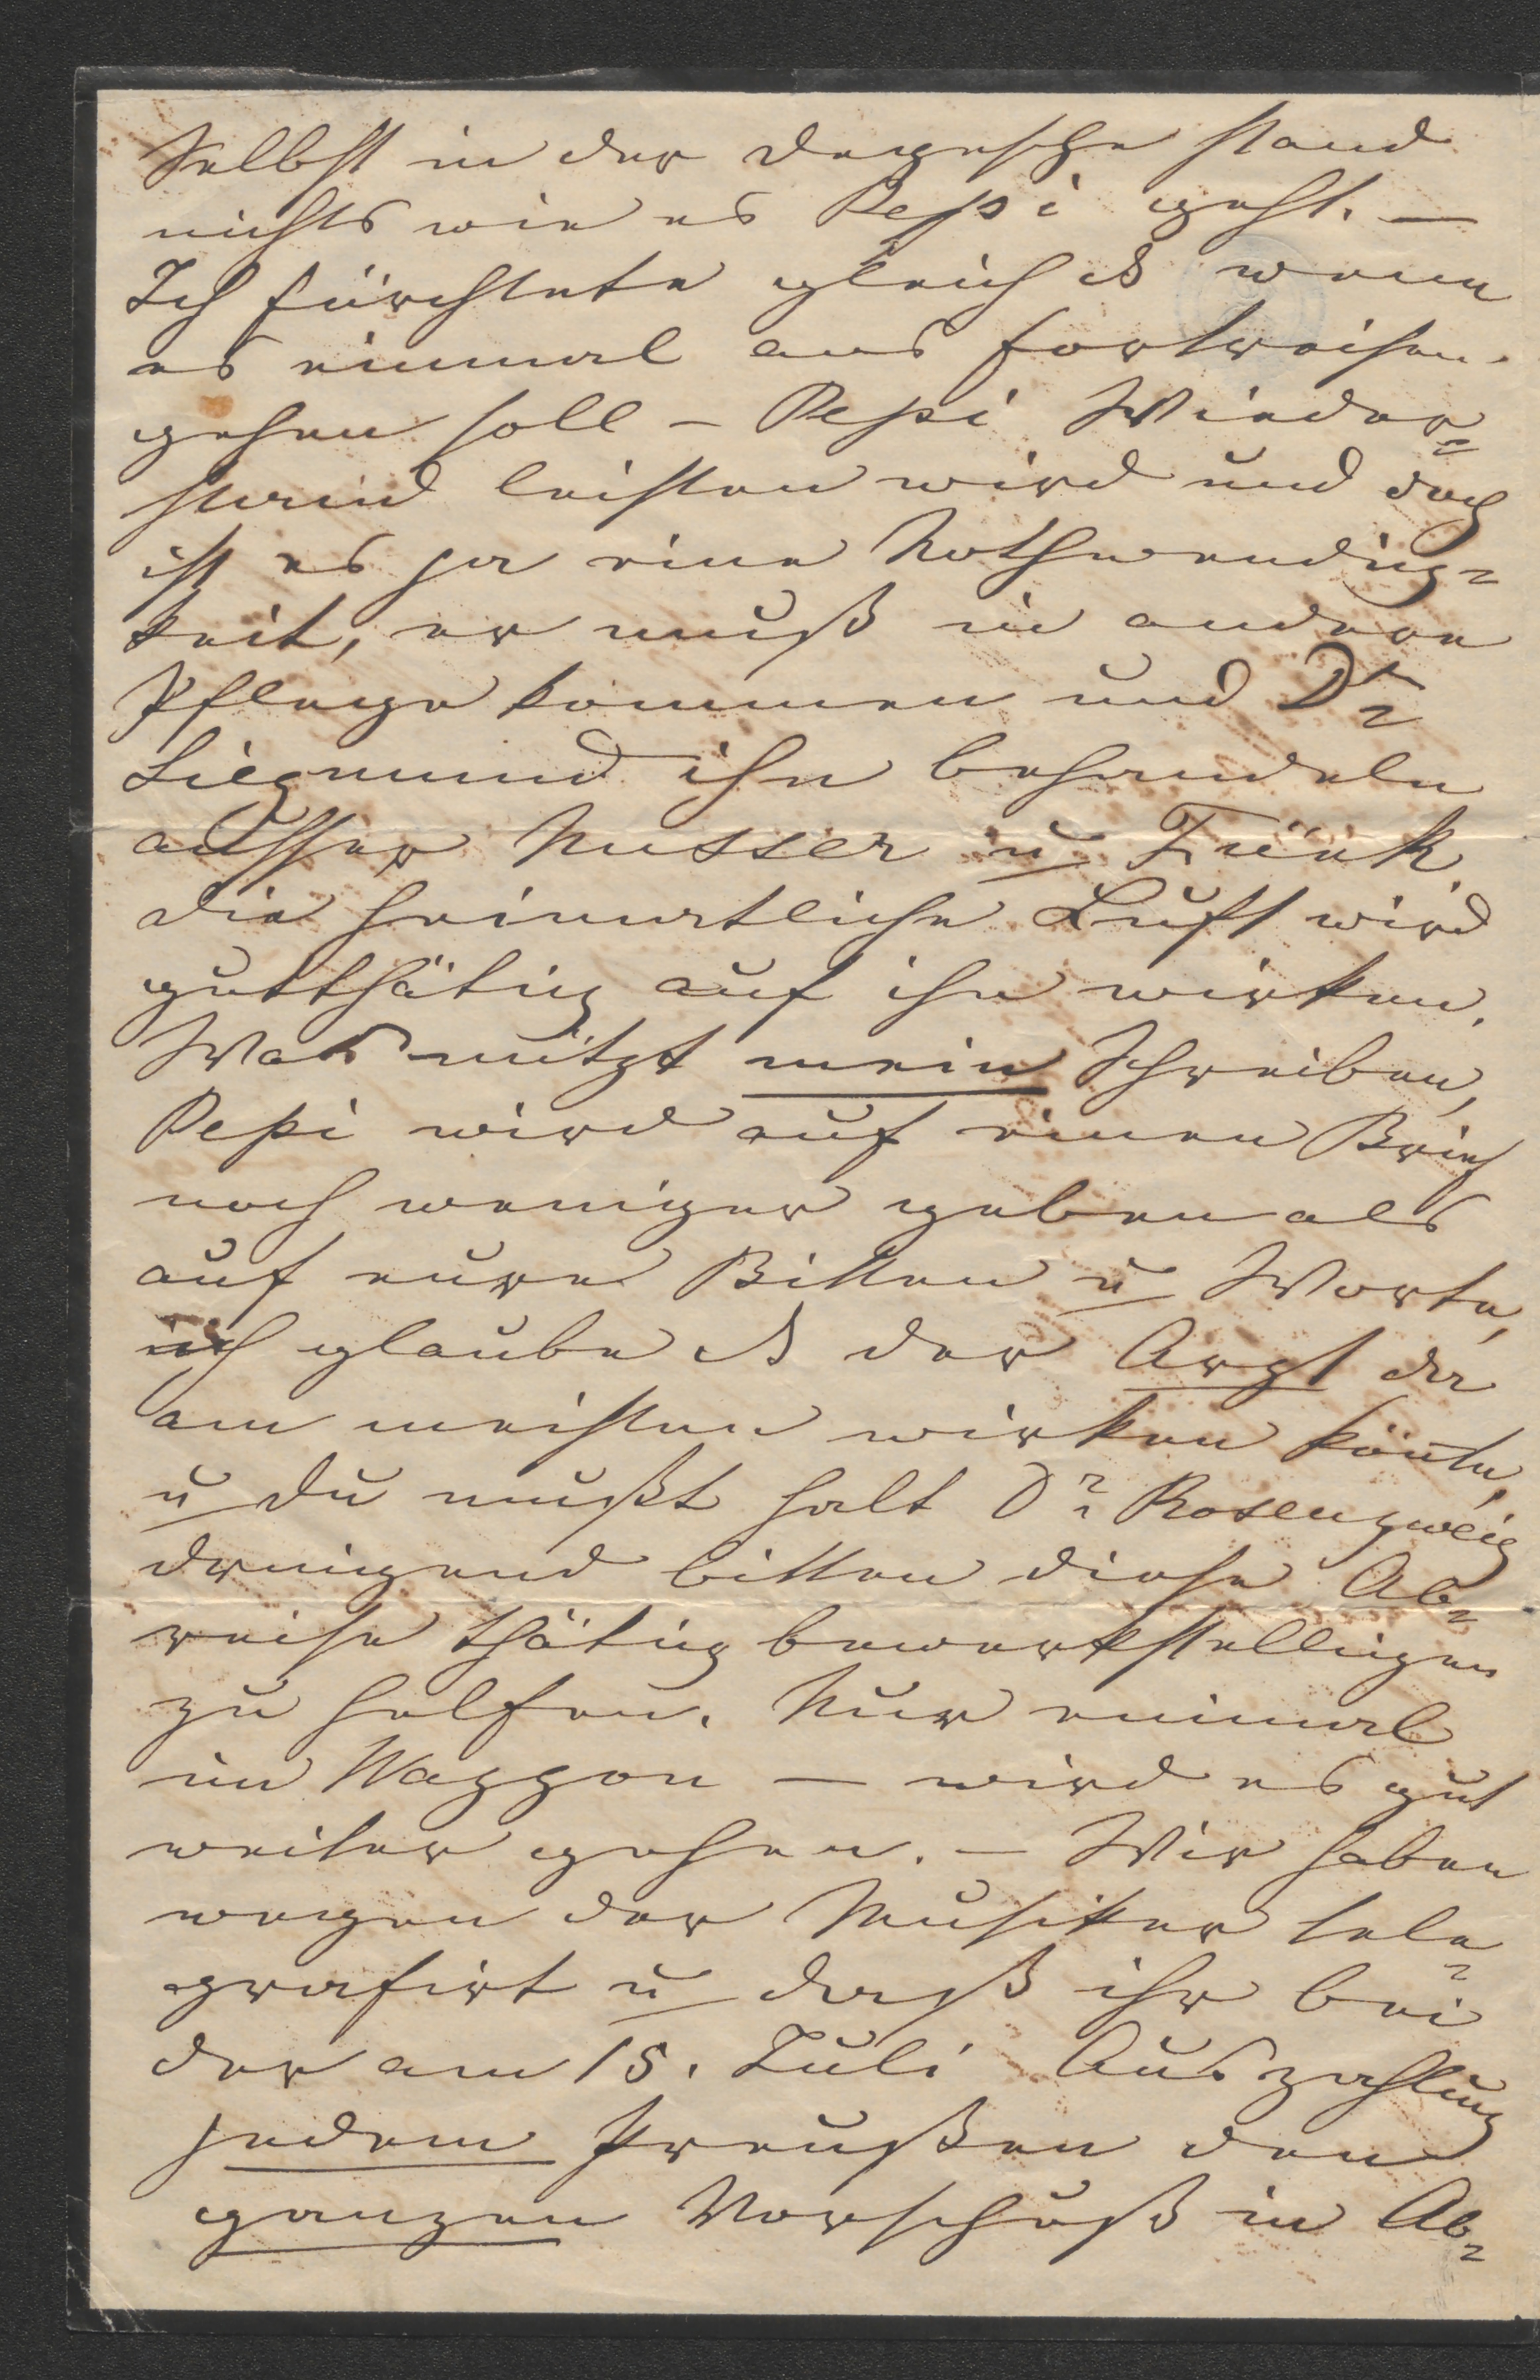 Selbst in der Depesche stand
nichts wie es Pepi geht. —
Ich fürchtete gleich d[a]ß wenn
es einmal ans fortreisen
gehen soll – Pepi Wieder=
stand leisten wird und doch
ist es ja eine Nothwendig=
keit, er muß in andere
Pflege kommen und Dr
Siegmund ihn behandeln
ausser Nusser u Fünk.
die heimatliche Luft wird
gutthätig auf ihn wirken.
Was nützt mein Schreiben,
Pepi wird auf einen Brief
noch weniger geben als
auf eure Bitten u Worte,
ich glaube d[a]ß der Arzt da
am meisten wirken könte,
u du mußt halt Dr Rosenzweig
dringend bitten diese Ab=
reise thätig bewerkstelligen
zu helfen. Nur einmal
im Waggon — wird es gut
weiter gehen. – Wir haben
wegen der Musiker tele=
grafirt u daß ihr bei
der am 15. Juli Auszahlung
jedem Preußen den
ganzen Vorschuß in Ab=